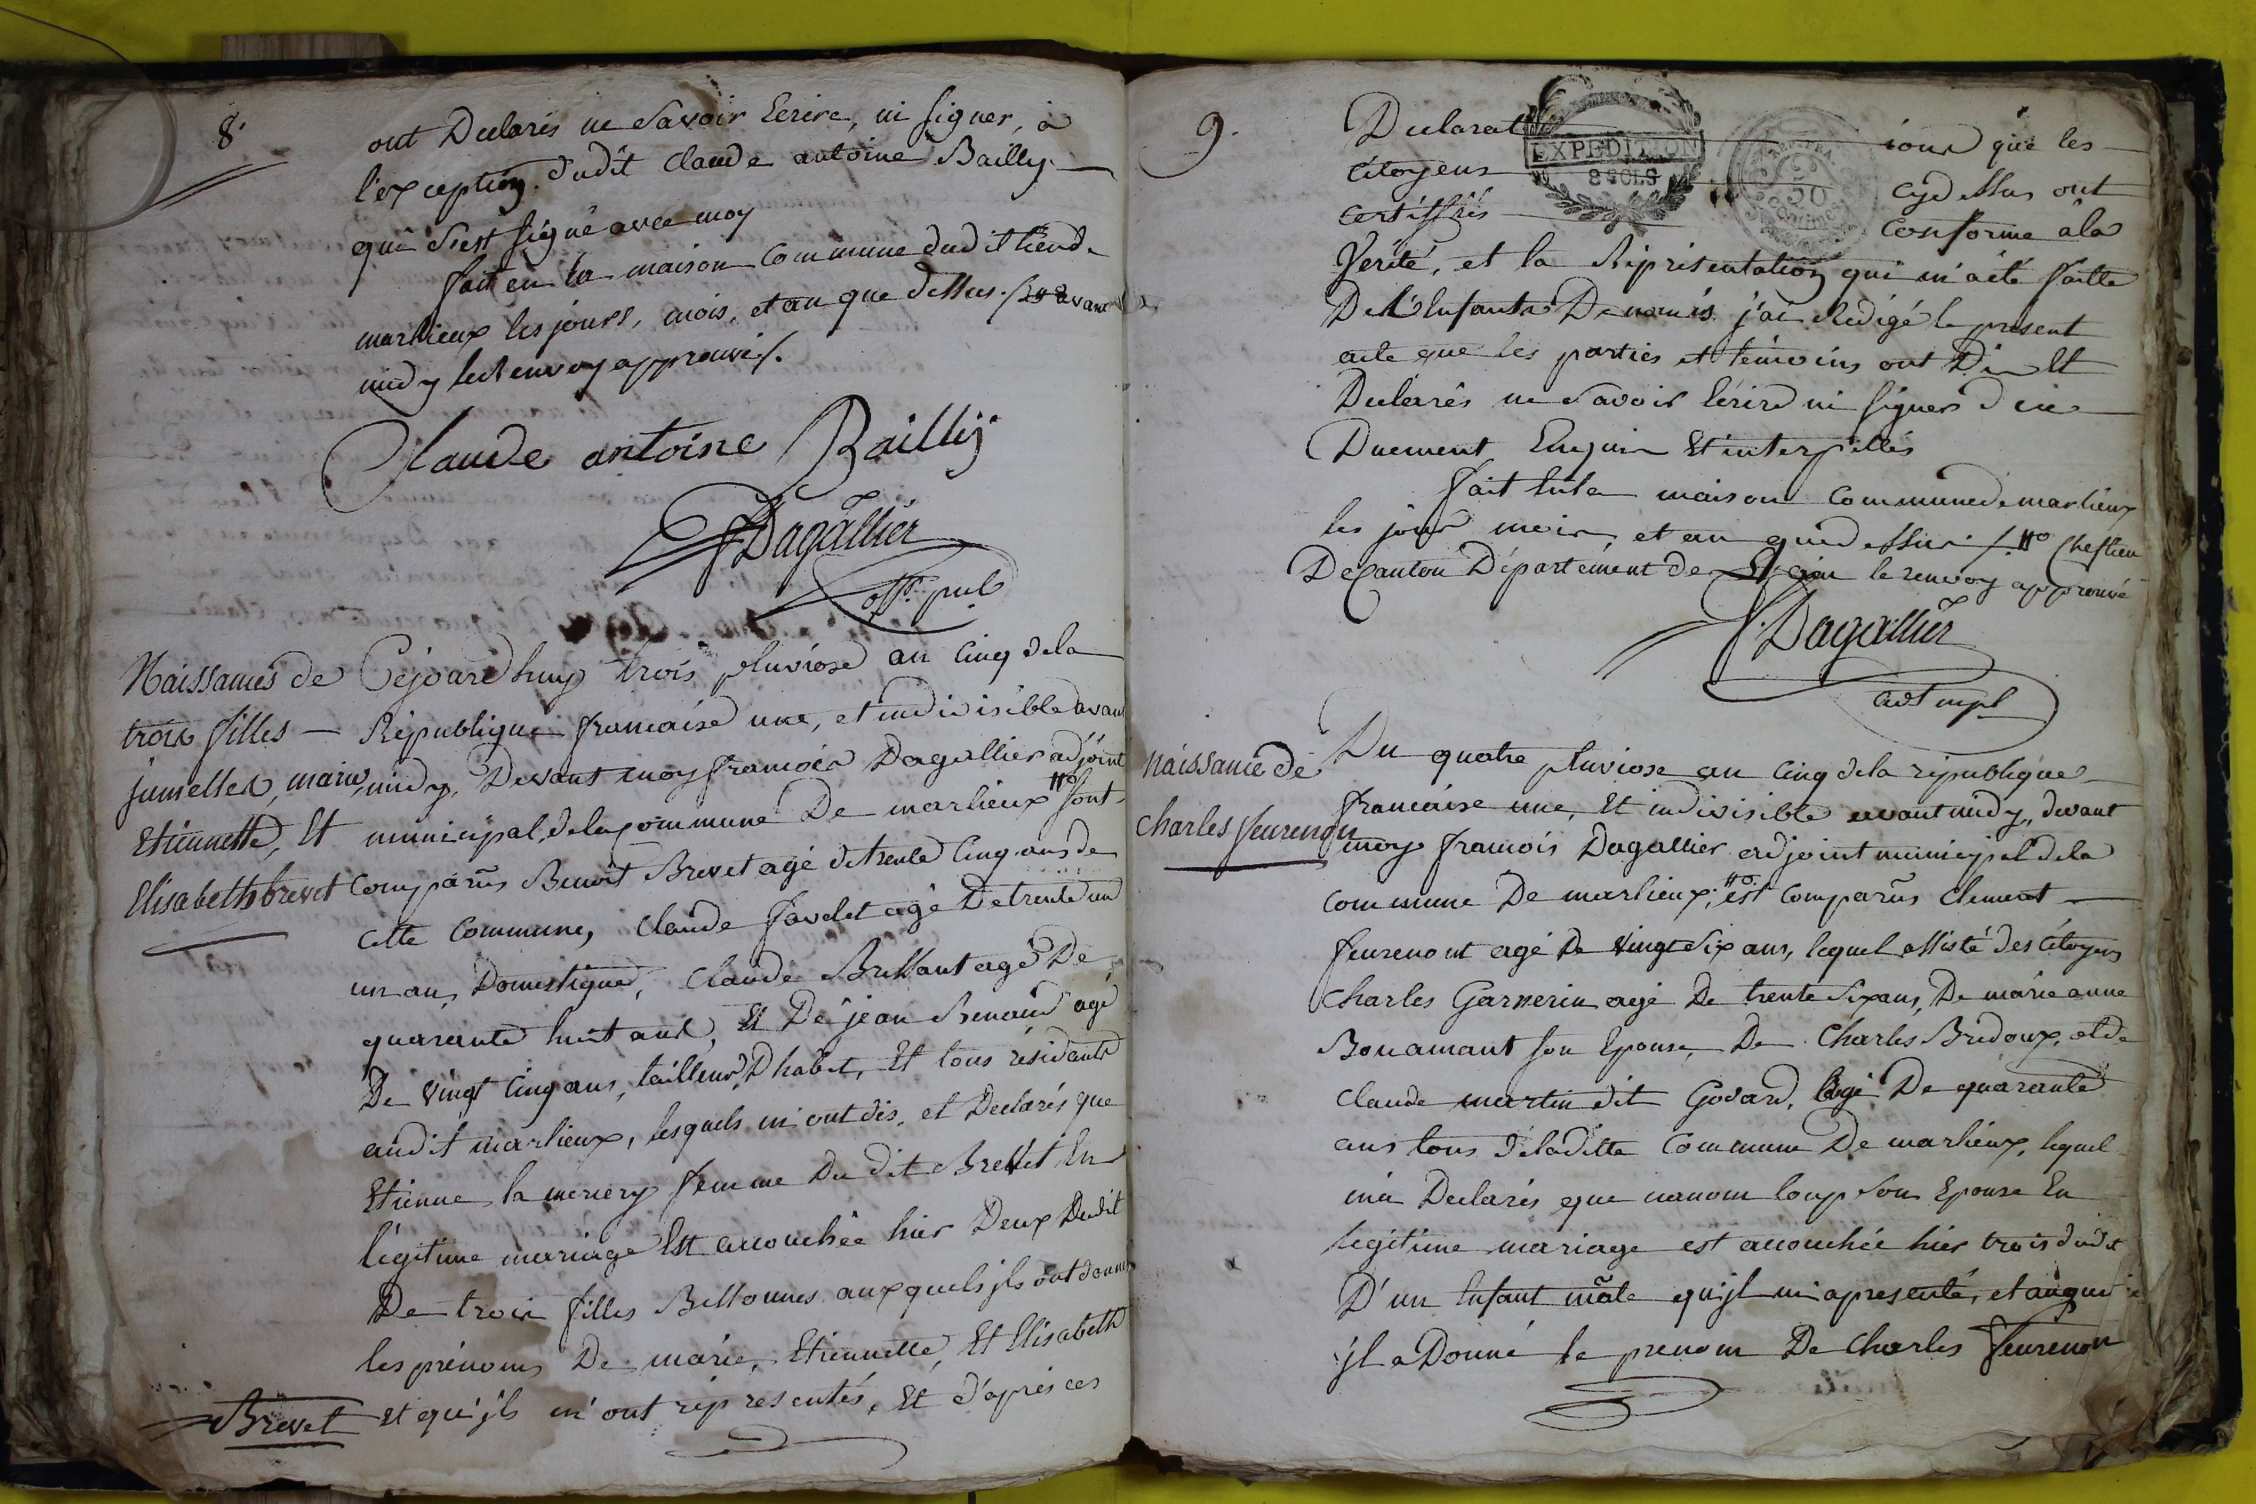 8.
ont Declarés ne Savoir Ecrire, ni signer, à
l'exception dudit Claude antoine Bailly
qui s'est signé avec moy
fait en la maison Commune dudit lieu de
marlieux les jours, mois, et an que dessus. avant
midy le renvoy approuvé
Claude antoine Bailly
Dagallier
off. pub
Naissances de
trois filles
jumelles, marie,
Etiennette, Et
Elisabeth brevet
Cejourdhuy trois pluviose an Cinq de la
République francaise une, et indivisible avant
midy, Devant moy francois Dagallier adjoint
municipal, de la commune De marlieux sont
Comparus Benoit Brevet agé de trente Cinq ans de
cette Commune, Claude favelet agé De trente un
un an, Domestique, Claude Brissant agé De
quarante huit ans, Et De jean Renaud agé
De vingt Cinq ans, tailleur D'habit, Et tous résidants
audit marlieux, lesquels m'ont dis, et Declarés que
Etienne la merery femme Du dit Brevet En
légitime mariage Est accouchée hier Deux Dudit
De trois filles Bessonnes auxquels jls ont donné
les prénoms De marie, Etiennette, Et Elisabeth
Brevet Et qu'jls m'ont représentés, Et d'après ces
9.
Declarat ions que les
Citoyens cydessus ont
certiffiés Conforme à la
EXPEDITION
8 SOLS
50
CENTIMES
Vérité, et la Réprésentation qui m'a été faitte
De l'Enfants Dénomés j'ai Rédigé le present
acte que les parties et témoins ont Dis Et
Declarés ne Savoir Ecrire ni signer d'ice
Duement Enquis Et interpellés
fait En la maison Commune de marlieux
les jour mois, et an que dessus Cheflieu
De Canton Département de l'ain le renvoy approuvé
Dagallier
adt mpl
Naissance de
Charles feurenon
Du quatre pluviose an Cinq de la république
francaise une, Et indivisible avant midy, devant
moy francois Dagallier adjoint municipal de la
commune De marlieux, est comparus Clement
feurenont agé De vingt Six ans, lequel assisté des Citoyens
Charles Garnerin agé De trente Six ans, De marie anne
Bonamant son Epouse, De Charles Bridoux, et de
Claude martin dit Godard, agé De quarante
ans tous De laditte Commune De marlieux, lequel
m'a Declarés que nanon loup son Epouse En
légitime mariage est accouchée hier trois dudit
D'un Enfant mâle qu'jl m'a presenté, et auquel
jl a Donné le prenom De Charles feurenon